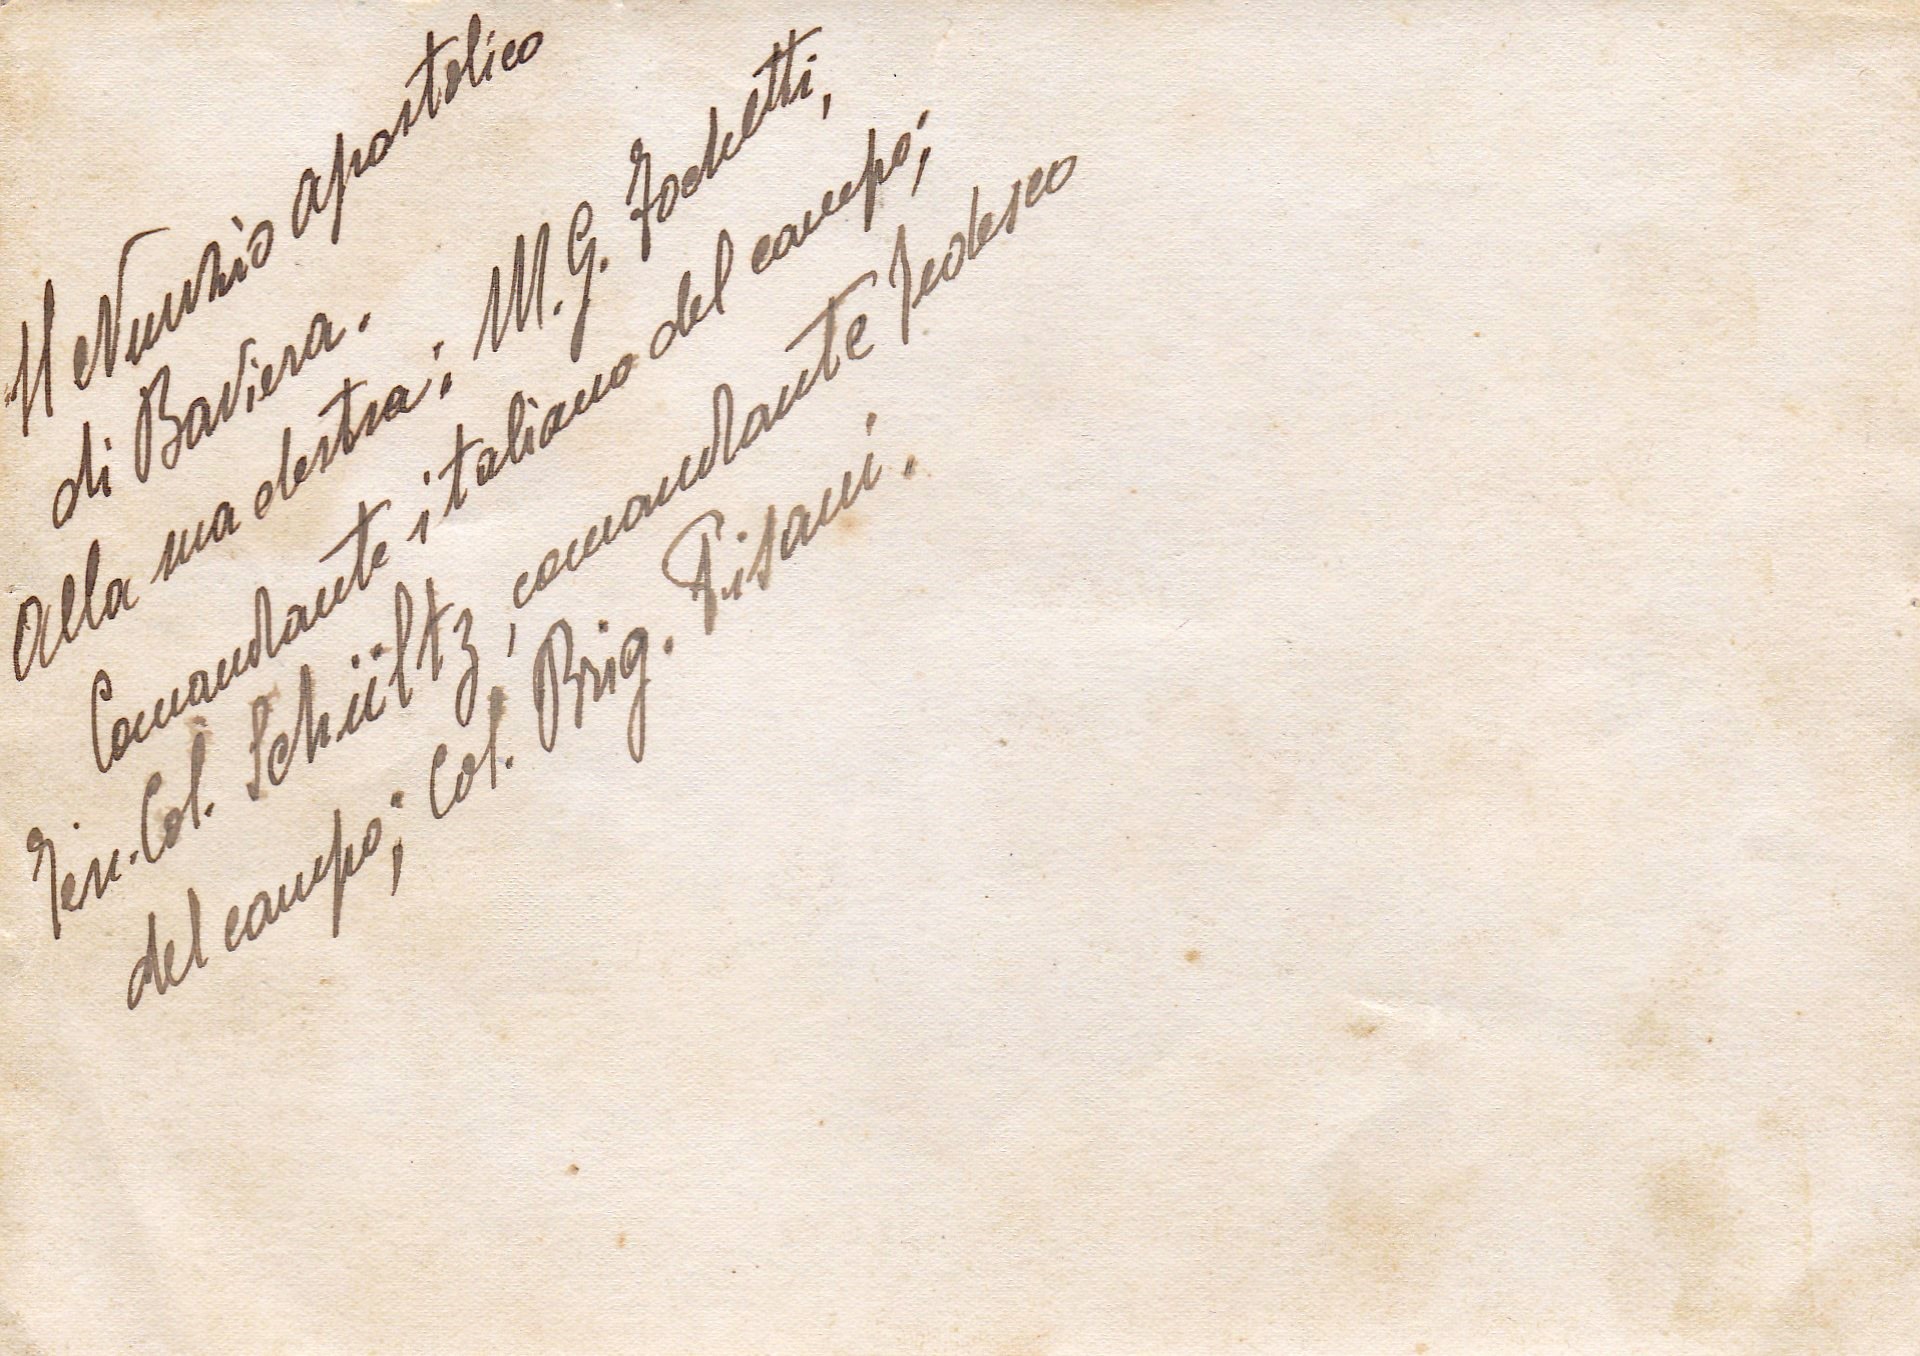 Il Nunzio apostolico
di Baviera.
Alla sua destra: M. G. Fochetti,
Comandante italiano del campo;
Ten. Col. Schültz, comandante tedesco
del campo; Col. Brig. Pisani.